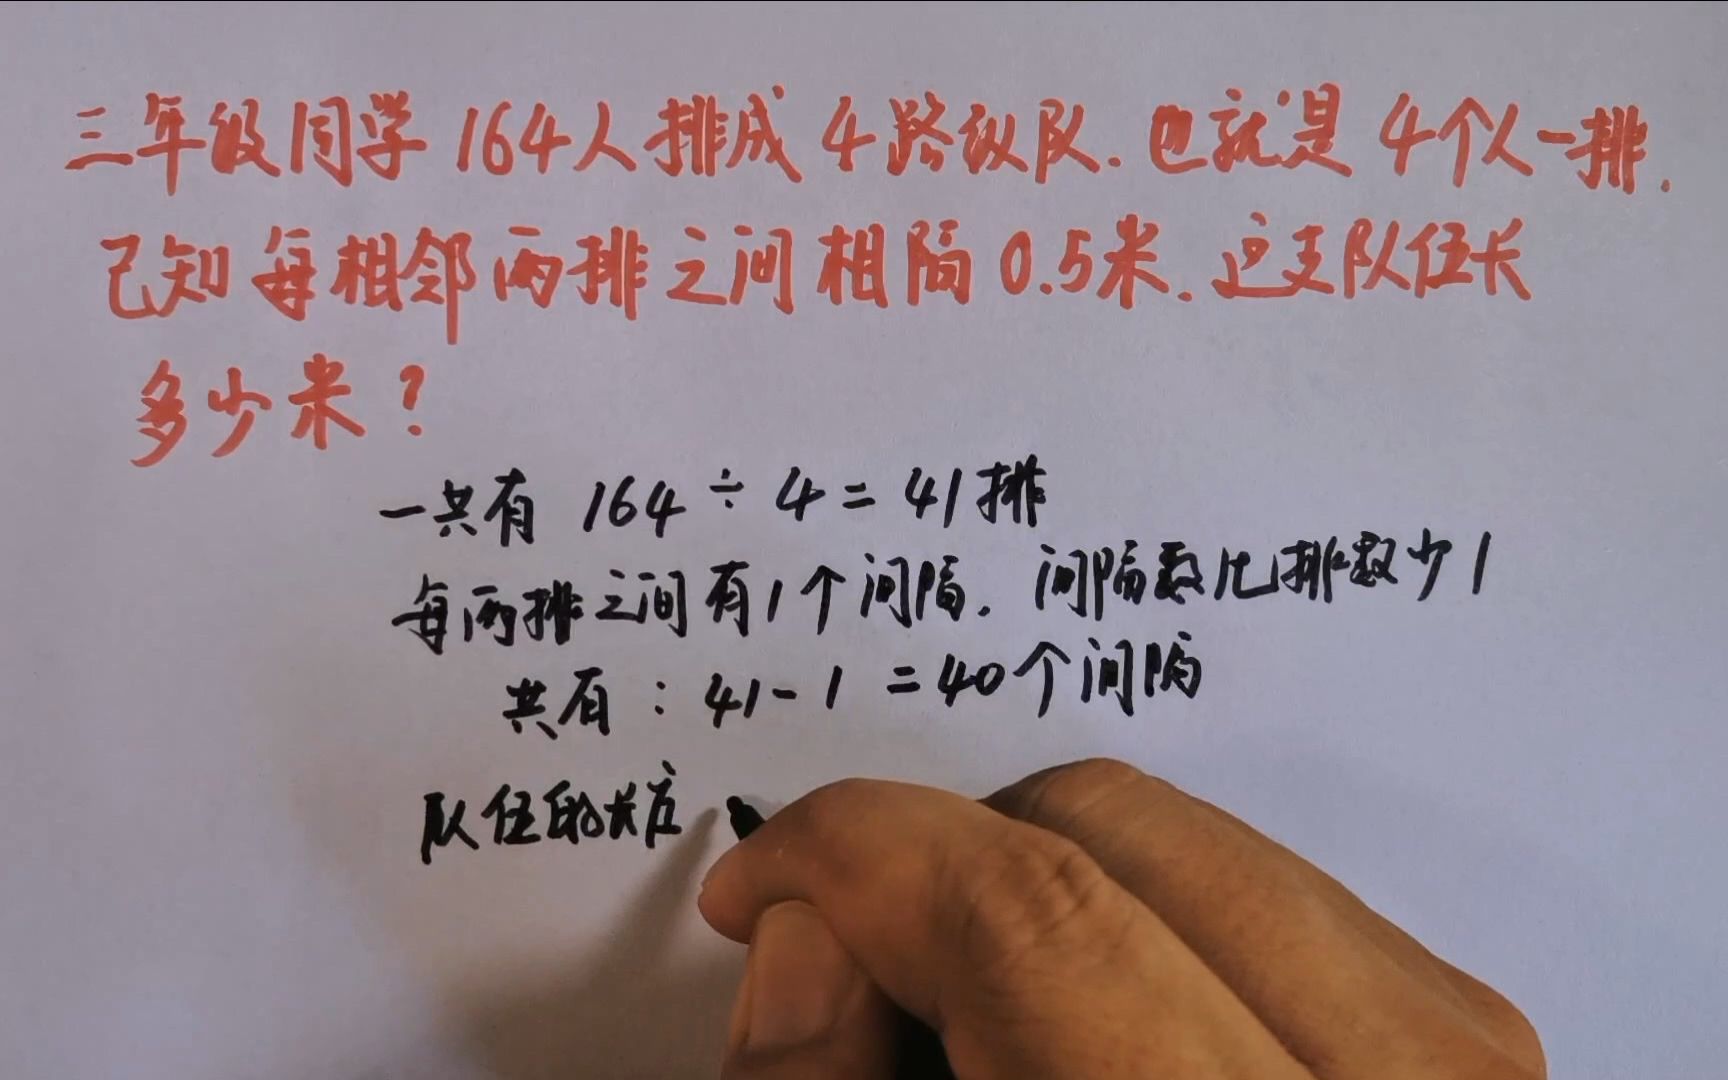 三年级同学164人排成4路纵队.也就是4个人一排.
已知每相邻两排之间相隔0.5米.这支队伍长
多少米?
一共有 164÷4=41排
每两排之间有1个间隔.间隔数比排数少1
共有:41-1=40个间隔
队伍的长度